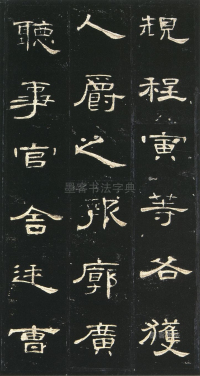 規程寅等各獲
人爵之報廓廣
聽事官舍廷曹
墨客书法字典